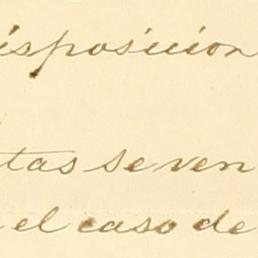 isposicion
tas se ven
el caso de